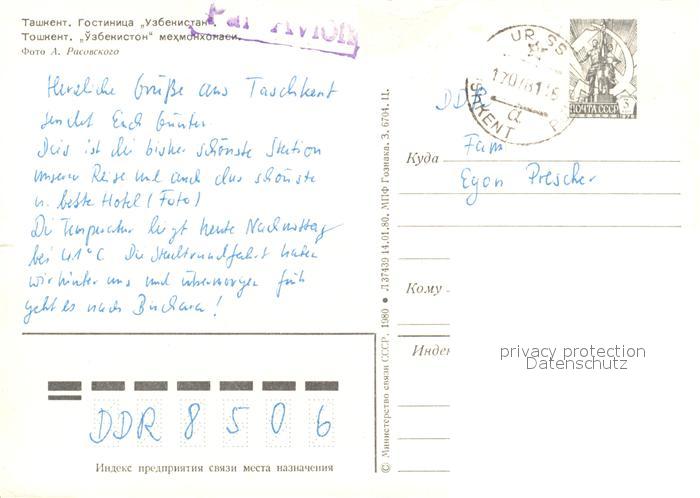 Ташкент. Гостиница „Узбекистан“.
Тошкент. „Ўзбекистон“ меҳмонхонаси.
Фото А. Рисовского
Par Avion
Herzliche Grüße aus Taschkent
sendet Euch Günter
Dies ist die bisher schönste Station
unserer Reise und auch das schönste
u. beste Hotel (Foto)
Die Temperatur liegt heute Nachmittag
bei 41°C. Die Stadtrundfahrt haben
wir hinter uns und übermorgen früh
geht es nach Buchara!
DDR 8 5 0 6
Индекс предприятия связи места назначения
© Министерство связи СССР. 1980 • Л 37439 14.01.80. МПФ Гознака. З. 6704. Ц.
URSS
ПОЧТА СССР
3
1976
DDR
Куда
Fam
Egon Prescher
Кому
Индек
privacy protection
Datenschutz